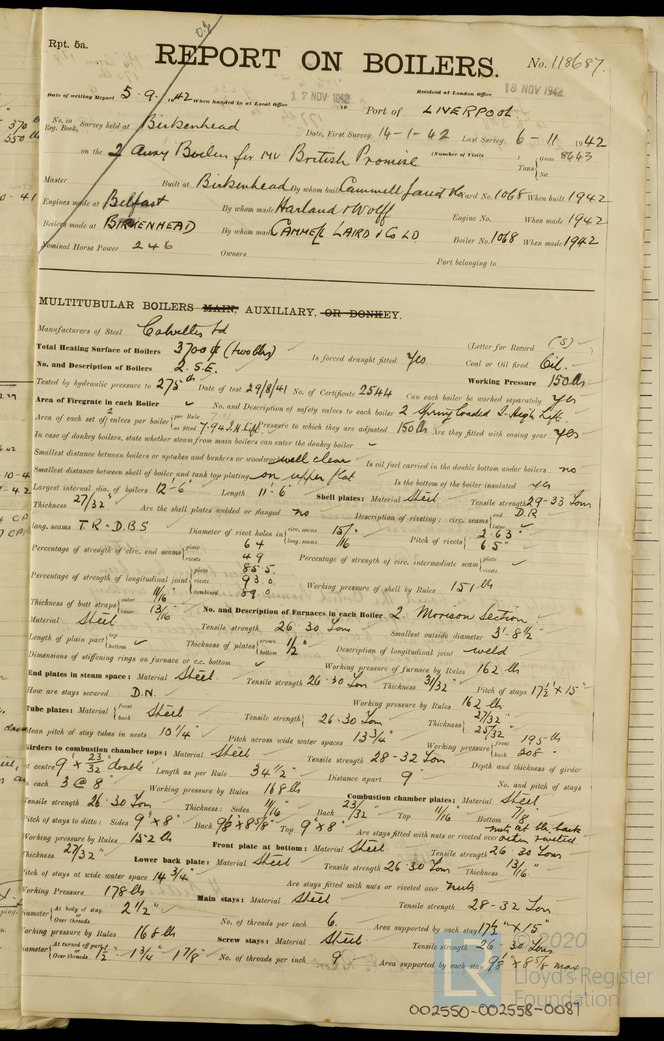 Rpt. 5a.
REPORT ON BOILERS.
No. 118687.
Received at London Office 18 NOV 1942
Date of writing Report 5.9.1942 When handed in at Local Office 17 NOV 1942 Port of LIVERPOOL
No. in Reg. Book. Survey held at Birkenhead Date, First Survey 14-1-42 Last Survey 6-11-1942
on the 2 auxy Boilers for MV British Promise (Number of Visits ) Tons { Gross 8443 Net
Master Built at Birkenhead By whom built Cammell Laird & Co Yard No. 1068 When built 1942
Engines made at Belfast By whom made Harland & Wolff Engine No. When made 1942
Boilers made at BIRKENHEAD By whom made CAMMELL LAIRD & Co LD Boiler No. 1068 When made 1942
Nominal Horse Power 246 Owners Port belonging to
MULTITUBULAR BOILERS MAIN, AUXILIARY, OR DONKEY.
Manufacturers of Steel Colvilles Ld (Letter for Record (S) )
Total Heating Surface of Boilers 3700 (two blrs) Is forced draught fitted Yes Coal or Oil fired Oil.
No. and Description of Boilers 2. S.E. Working Pressure 150 lbs
Tested by hydraulic pressure to 275 lb Date of test 29/8/41 No. of Certificate 2544 Can each boiler be worked separately yes
Area of Firegrate in each Boiler ✓ No. and Description of safety valves to each boiler 2 Spring loaded 2" High Lift
Area of each set of valves per boiler { per Rule as fitted 7.94 Pressure to which they are adjusted 150 lbs Are they fitted with easing gear yes
In case of donkey boilers, state whether steam from main boilers can enter the donkey boiler ✓
Smallest distance between boilers or uptakes and bunkers or woodwork well clear Is oil fuel carried in the double bottom under boilers no
Smallest distance between shell of boiler and tank top plating on upper flat Is the bottom of the boiler insulated yes
Largest internal dia. of boilers 12'-6" Length 11'-6" Shell plates: Material Steel Tensile strength 29-33 Tons
Thickness 27/32" Are the shell plates welded or flanged no Description of riveting: circ. seams { end D.R inter. ✓
long. seams T.R-D.B.S Diameter of rivet holes in { circ. seams 15/16" long. seams Pitch of rivets { 2.63" 6.5"
Percentage of strength of circ. end seams { plate 64 rivets 49 Percentage of strength of circ. intermediate seam { plate rivets
Percentage of strength of longitudinal joint { plate 85.5 rivets 93.0 combined 89.0 Working pressure of shell by Rules 151 lb
Thickness of butt straps { outer 11/16" inner 13/16" No. and Description of Furnaces in each Boiler 2 Morison Section
Material Steel Tensile strength 26-30 Tons Smallest outside diameter 3'-8½"
Length of plain part { top bottom ✓ Thickness of plates { crown bottom ½" Description of longitudinal joint weld
Dimensions of stiffening rings on furnace or c.c. bottom ✓ Working pressure of furnace by Rules 162 lb
End plates in steam space: Material Steel Tensile strength 26-30 Tons Thickness 31/32" Pitch of stays 17½" x 15"
How are stays secured D.N. Working pressure by Rules 162 lb
Tube plates: Material { front back Steel Tensile strength { 26-30 Tons Thickness { 27/32" 25/32"
Mean pitch of stay tubes in nests 10¼" Pitch across wide water spaces 13¾" Working pressure { front 195 lb back 208 "
Girders to combustion chamber tops: Material Steel Tensile strength 28-32 Tons Depth and thickness of girder
at centre 9" x 23/32" double Length as per Rule 34½" Distance apart 9" No. and pitch of stays
in each 3 @ 8" Working pressure by Rules 168 lb Combustion chamber plates: Material Steel
Tensile strength 26-30 Tons Thickness: Sides 11/16" Back 23/32" Top 11/16" Bottom 7/8"
Pitch of stays to ditto: Sides 9" x 8" Back 9⅛" x 8⅝" Top 9" x 8" Are stays fitted with nuts or riveted over nuts at the back others riveted
Working pressure by Rules 152 lb Front plate at bottom: Material Steel Tensile strength 26-30 Tons
Thickness 27/32" Lower back plate: Material Steel Tensile strength 26-30 Tons Thickness 13/16"
Pitch of stays at wide water space 14¾" Are stays fitted with nuts or riveted over nuts
Working Pressure 178 lbs Main stays: Material Steel Tensile strength 28-32 Tons
Diameter { At body of stay, or Over threads 2½" No. of threads per inch 6 Area supported by each stay 17½" x 15"
Working pressure by Rules 168 lb Screw stays: Material Steel Tensile strength 26-30 Tons
Diameter { At turned off part, or Over threads 1½" 1¾" 1⅞" No. of threads per inch 9 Area supported by each stay 9⅛" x 8⅝" max
© 2020
LR
Lloyd's Register
Foundation
002550-002558-0089